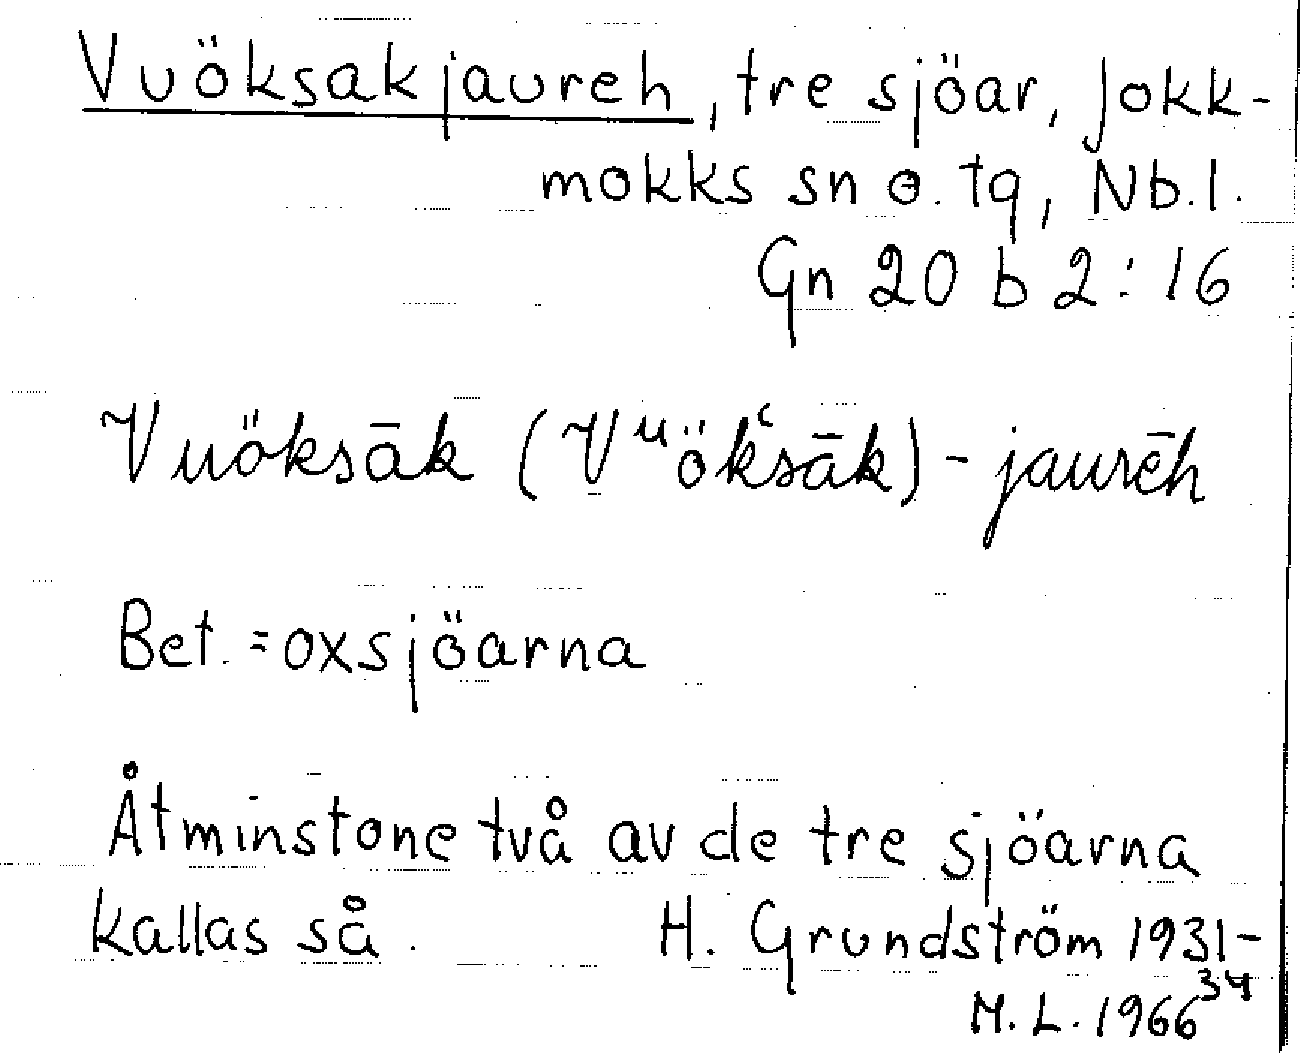 Vuöksakjaureh, tre sjöar, Jokk-
mokks sn o. tg, Nb.l.
Gn 20 b 2:16
Vuöksāk (Vᵘök῾sāk)-jaurēh
Bet. = oxsjöarna
Åtminstone två av de tre sjöarna
kallas så. H. Grundström 1931-
34
M.L. 1966